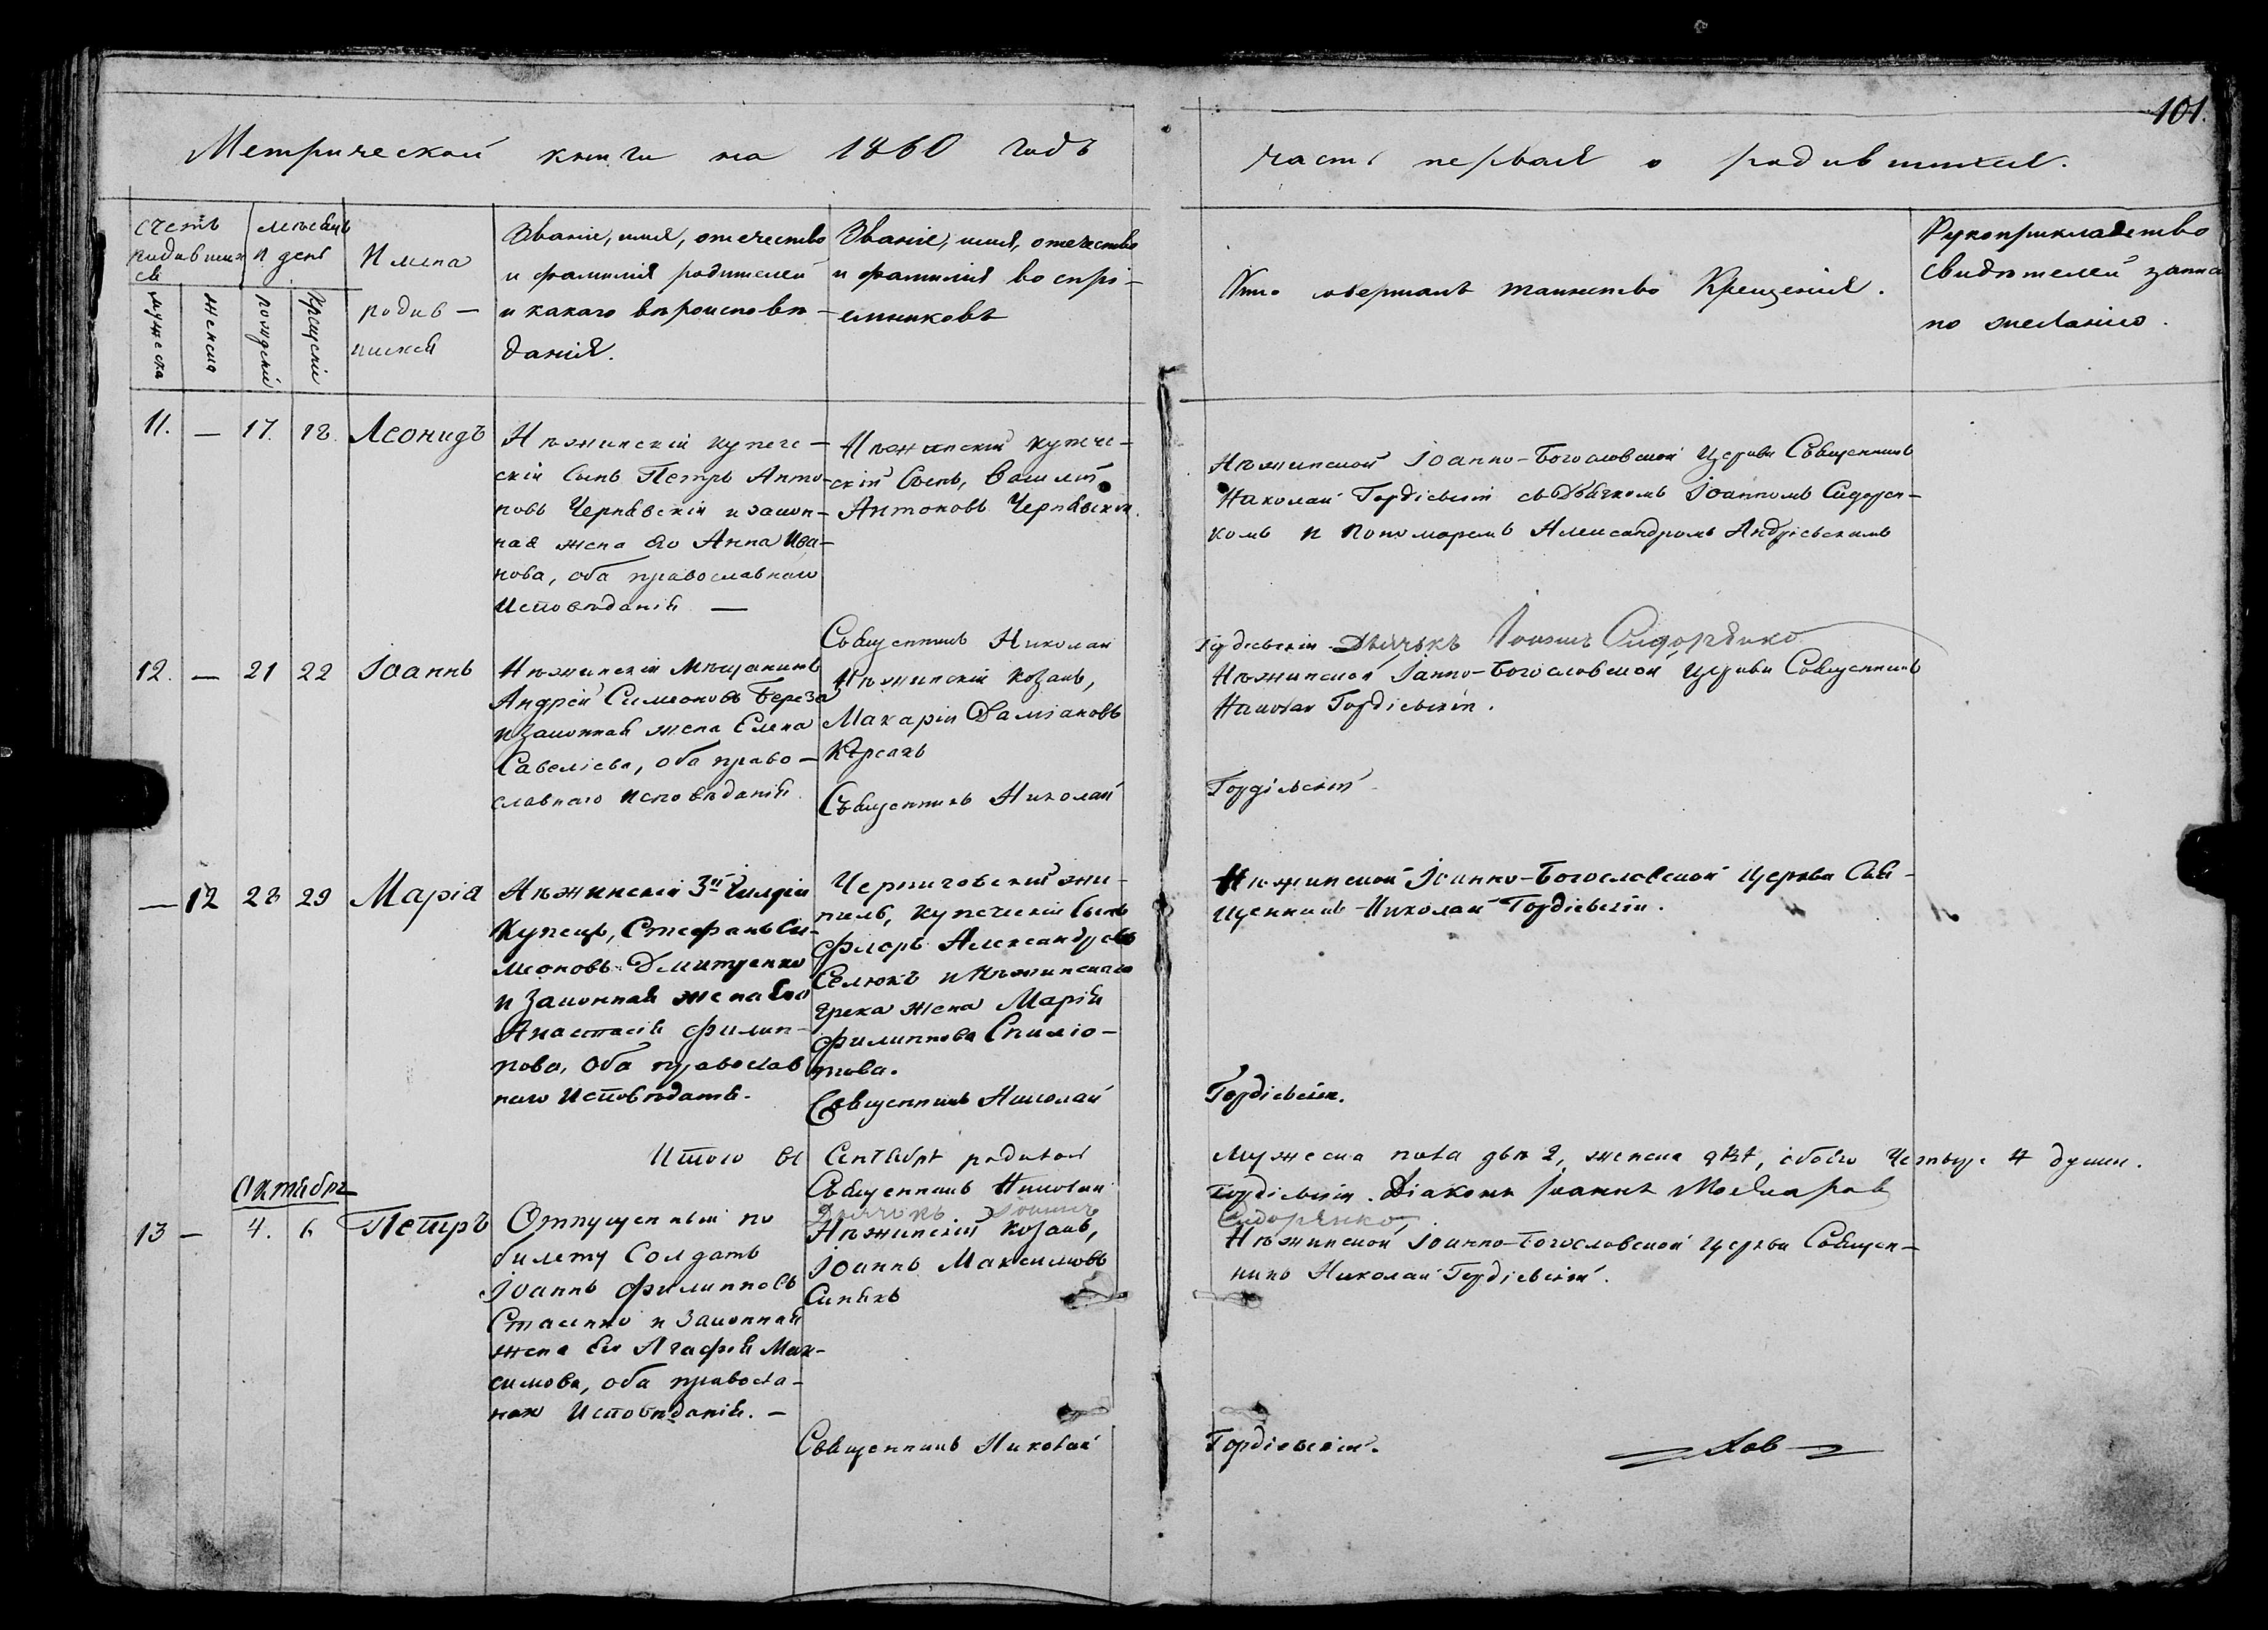 101.
Метрической книги на 1860 годъ
часть первая о родившихся.
счетъ родивших ся
мѣсяцъ и день
мужеска
женска
рожденія
крещенія
Имена
родив-
шихся
Званіе, имя, отечество
и фамилія родителей
и какаго вѣроисповѣ-
данія.
Званіе, имя, отечество
и фамилія воспрі-
емниковъ
Кто совершалъ таинство Крещенія.
Рукоприкладство
свидѣтелей запи
по желанію.
11. — 17. 18. Леонидъ
Нѣжинскій купече-
скій Сынъ Петръ Анто-
новъ Чернявскій и закон-
ная жена его Анна Ива-
нова, оба православнаго
Исповѣданія —
Нѣжинскій купече-
скій Сынъ, Василій
Антоновъ Чернявскій.
Нѣжинской Іоанно-Богословской Церкви Священникъ
Николай Гордіевскій съ Дьячкомъ Іоанномъ Сидорен-
комъ и Пономаремъ Александромъ Андріевскимъ
Священникъ Николай Гордіевскій Дьячокъ Іоаннъ Сидоренко
12. — 21 22 Іоаннъ
Нѣжинскій Мѣщанинъ
Андрей Симеоновъ Береза
и законная жена Елена
Савеліева, оба право-
славнаго Исповѣданія
Нѣжинскій козакъ,
Макарій Даміановъ
Нѣжинской Іанно-Богословской Церкви Священникъ
Николай Гордіевскій.
Священникъ Николай Гордіевскій
— 12 28 29 Марія
Нѣжинскій 3й Гилдіи
Купецъ, Стефанъ Си-
меоновъ Дмитренко
и Законная жена Его
Анастасія Филип-
пова, Оба православ
наго Исповѣданія.
Черниговскій жи-
тель, купеческій Сынъ
Флоръ Александровъ
Селюкъ и Нѣжинскаго
грека жена Марія
Филиппова Спиліо-
това.
Нѣжинской Іоанно-Богословской Церкви Свя-
щенникъ Николай Гордіевскій.
Священникъ Николай Гордіевскій.
Итого въ Сентябрѣ родилось мужеска пола два 2, женска двѣ, обоего Четыре 4 душы.
Священникъ Николай Гордіевскій. Діаконъ Іоаннъ
Дьячокъ Іоаннъ Сидоренко
Октябрь
13 — 4. 6 Петръ
Отпущенный по
билету Солдатъ
Іоаннъ Филипповъ
Стасенко и Законная
жена Его Агафія Мак-
симова, оба правосла-
наго Исповѣданія. —
Нѣжинскій козакъ,
Іоаннъ Максимовъ
Синякъ
Нѣжинской Іоанно-Богословской Церкви Священ-
никъ Николай Гордіевскій.
Священникъ Николай Гордіевскій.